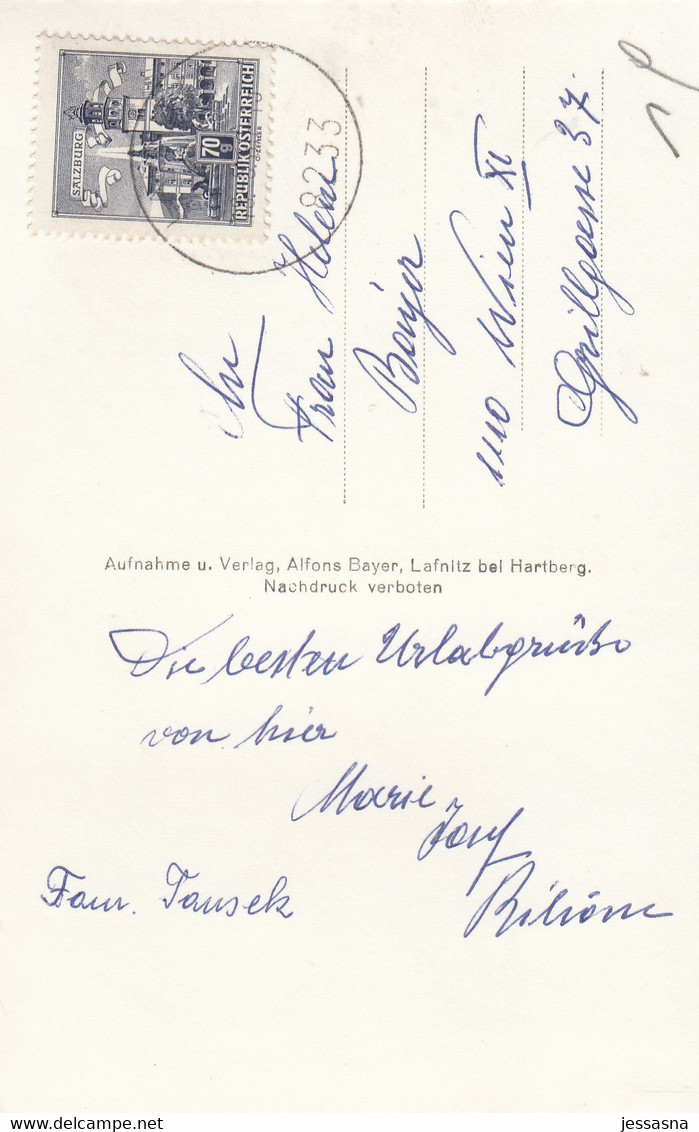 SALZBURG
70
g
REPUBLIK ÖSTERREICH
8233
An
Frau Helene
Bayer
1110 Wien XI
Grillgasse 37.
Aufnahme u. Verlag, Alfons Bayer, Lafnitz bei Hartberg.
Nachdruck verboten
Die besten Urlabgrüße
von hier
Marie
Josef
Fam. Tausek
delcampe.net
jessasna